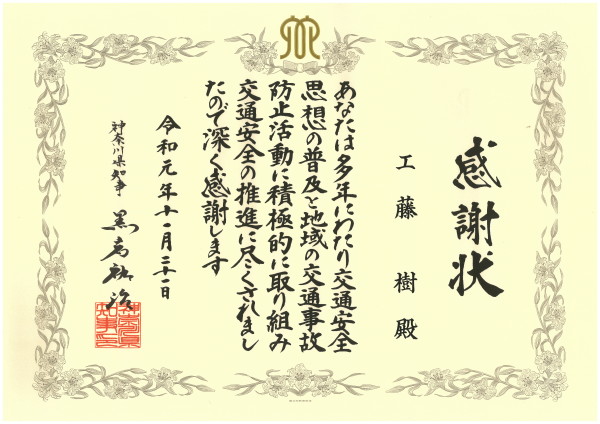 感謝状
工藤樹殿
あなたは多年にわたり交通安全
思想の普及と地域の交通事故
防止活動に積極的に取り組み
交通安全の推進に尽くされまし
たので深く感謝します
令和元年十一月二十一日
神奈川県知事 黒岩祐治